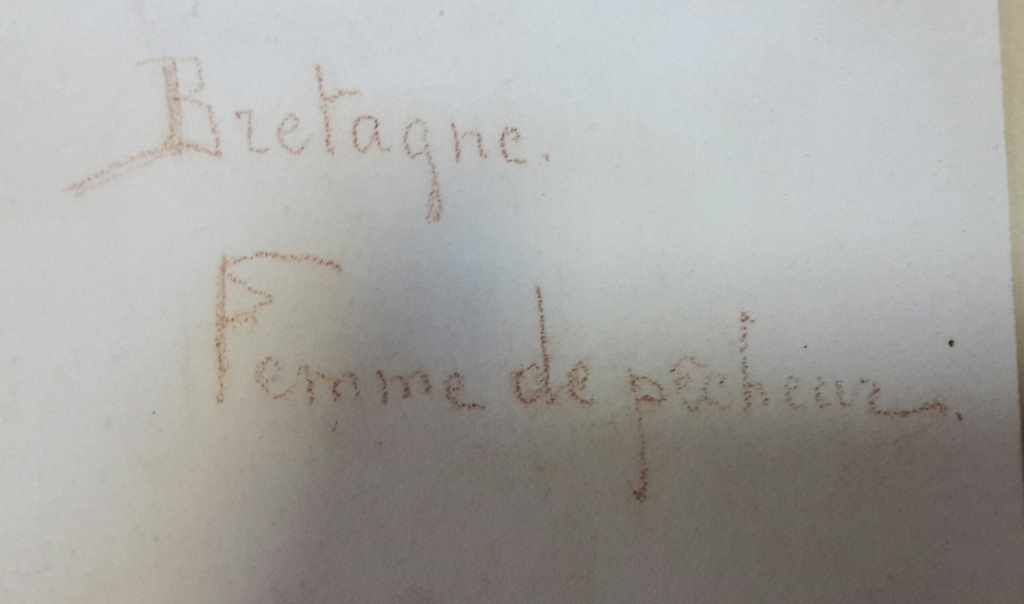 Bretagne.
Femme de pêcheur.